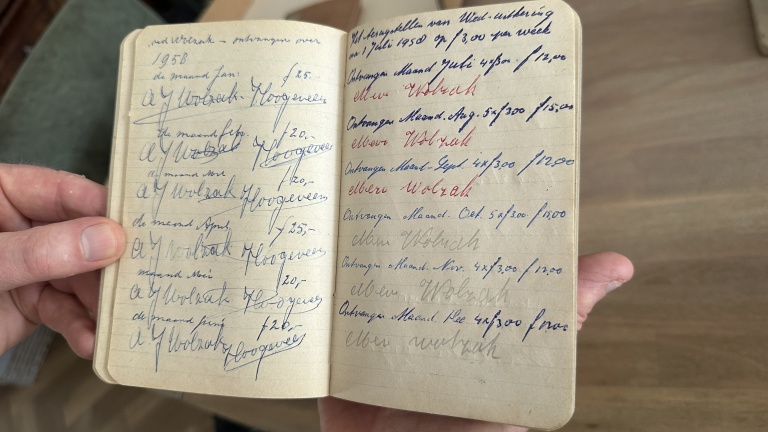 Oud Wolzak - ontvangen over
1958
de maand Jan: f 25.-
A J Wolzak- Hoogeveen
de maand febr. f 20,-
A J Wolzak Hoogeveen
de maand f 20,-
A J Wolzak Hoogeveen
de maand April f 25,-
A J Wolzak Hoogeveen
maand Mei f 20,-
A J Wolzak Hoogeveen
de maand Juni f 20,-
A J Wolzak Hoogeveen
Het terugstellen van
1 Juli 1958 op f 3,00 per week
Ontvangen Maand Juli 4xf300. f 12,00
Wolzak
Ontvangen Maand. Aug. 5xf300 f 15,00
Wolzak
Ontvangen Maand-Sept 4xf3,00 f 12,00
Wolzak
Ontvangen Maand. Oct. 5xf3,00
Wolzak
Ontvangen Maand. Nov. 4xf3,00. f 12,00
Wolzak
Ontvangen Maand. Dec 4xf300
Wolzak